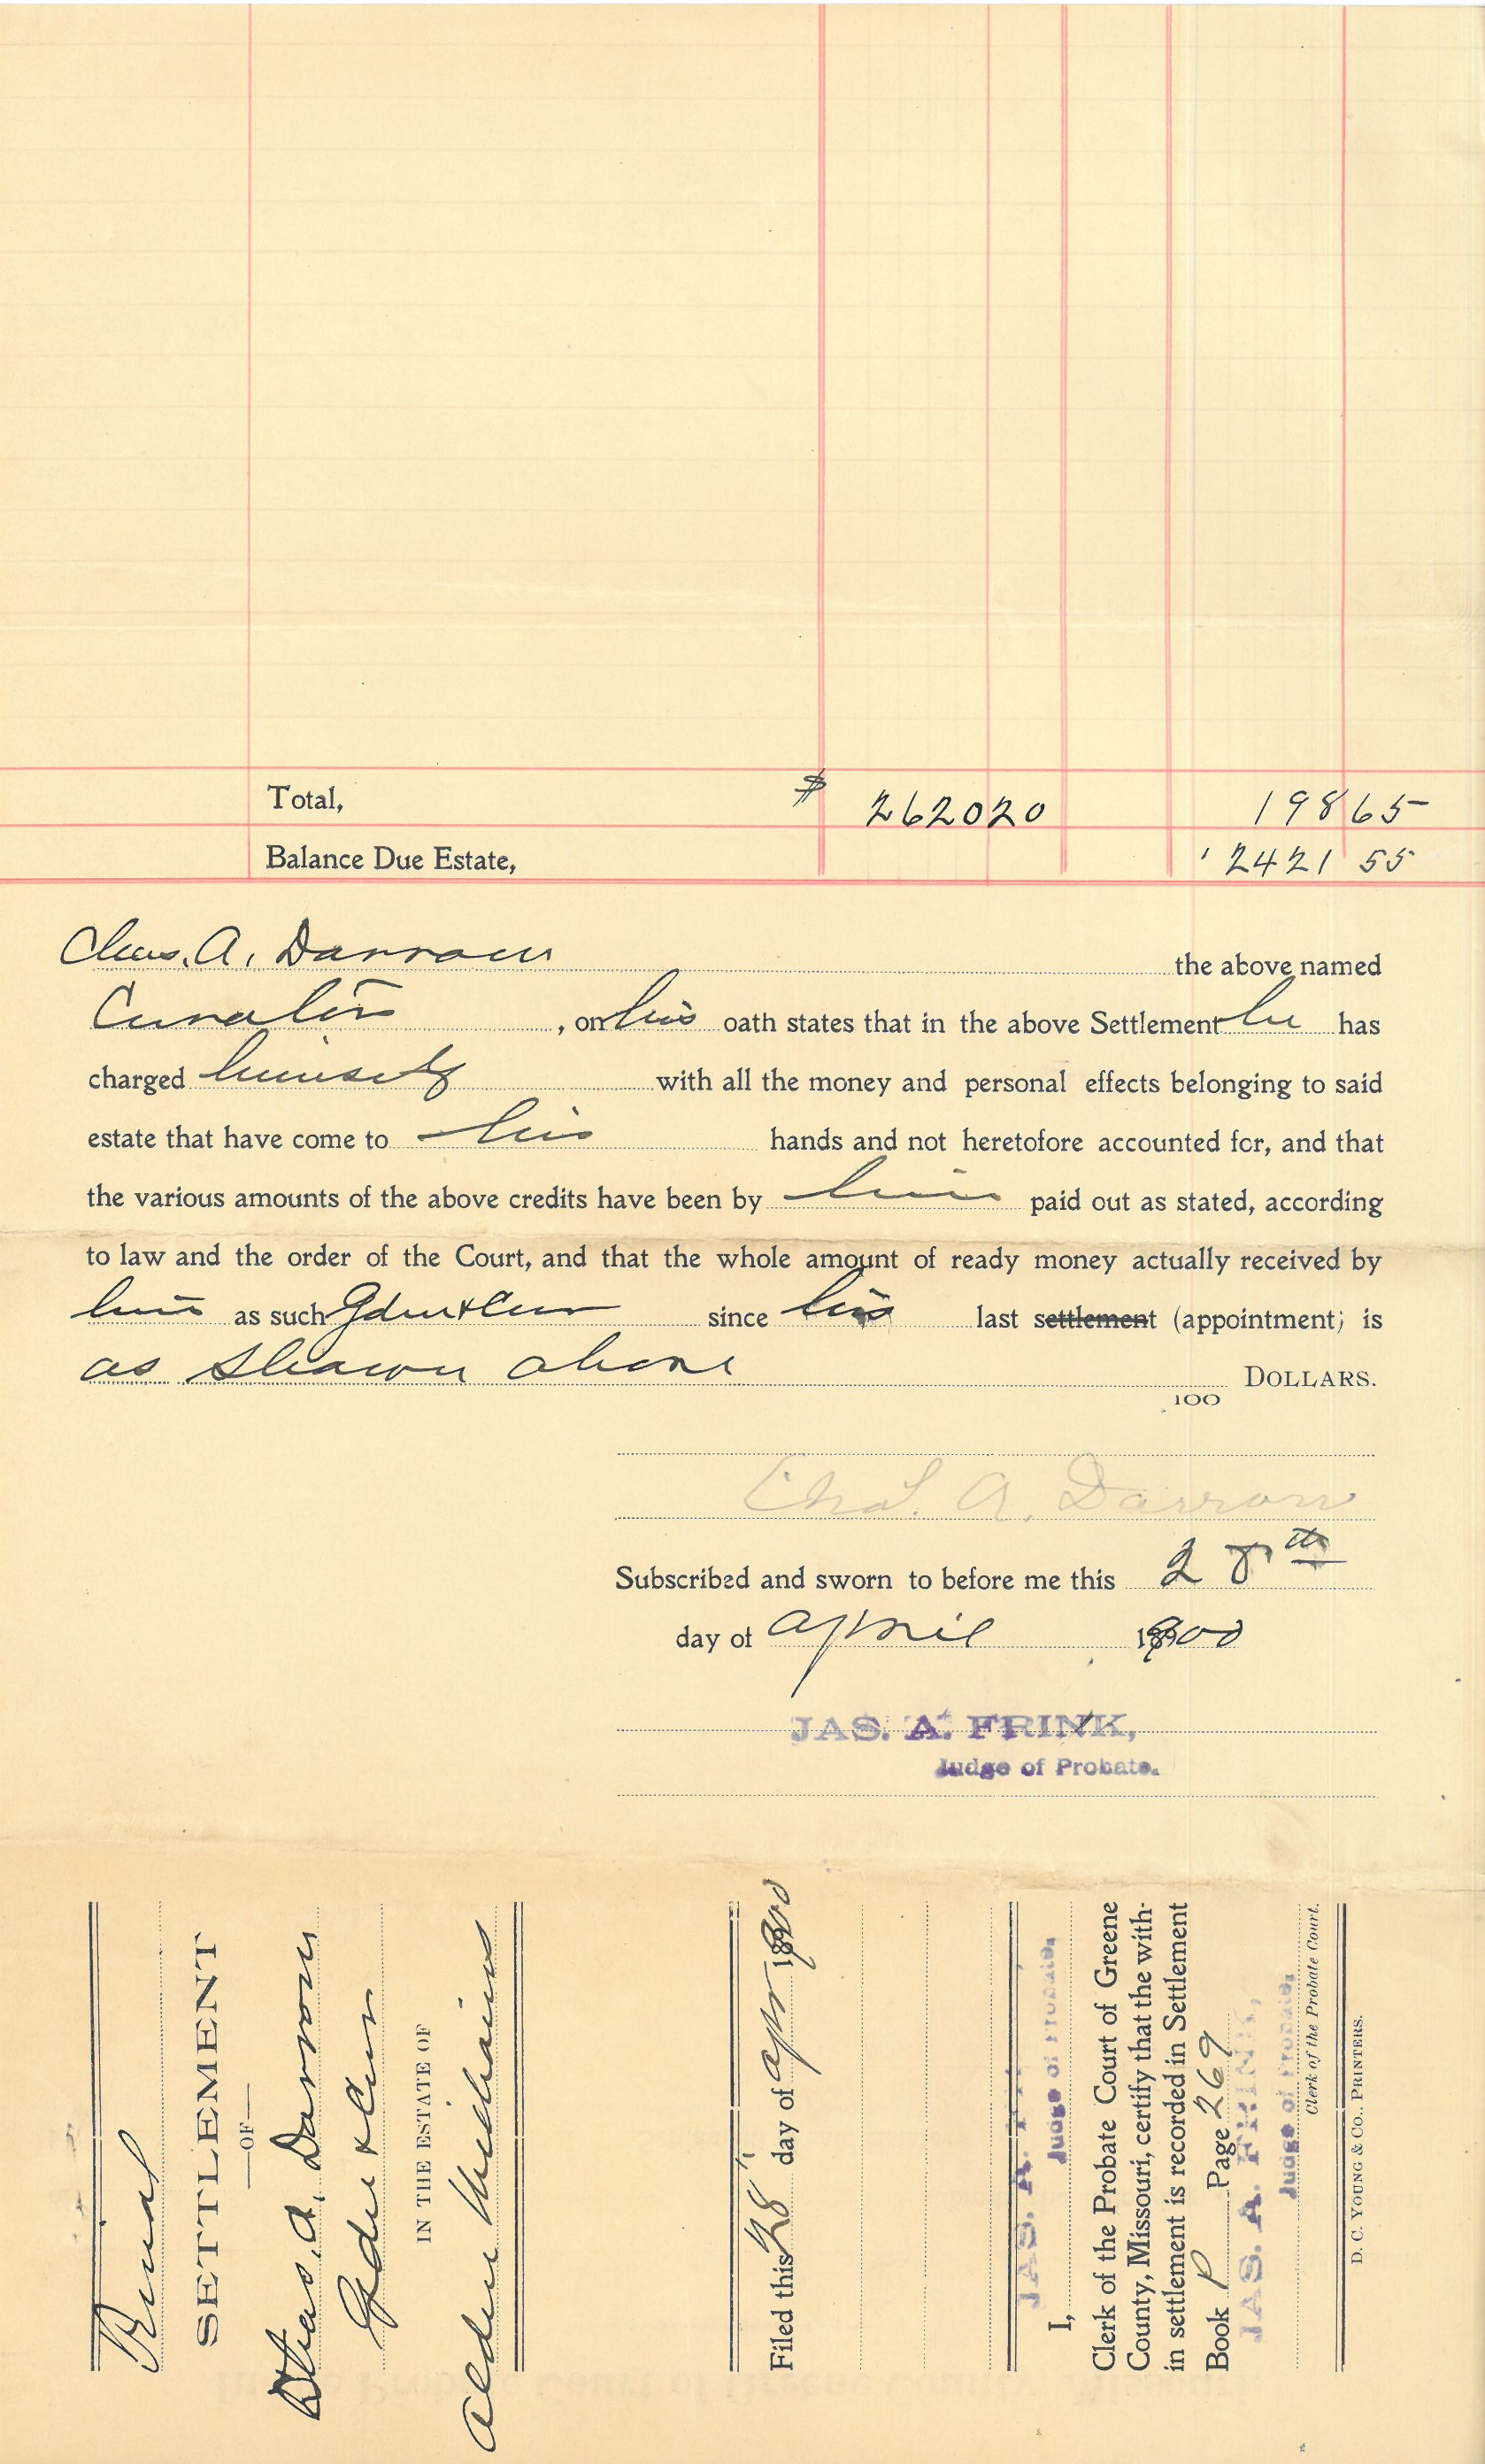 Total, $ 2620 20 198 65
Balance Due Estate, 2421 55
Chas. A. Darrow the above named
Curator , on his oath states that in the above Settlement he has
charged himself with all the money and personal effects belonging to said
estate that have come to his hands and not heretofore accounted for, and that
the various amounts of the above credits have been by him paid out as stated, according
to law and the order of the Court, and that the whole amount of ready money actually received by
him as such Gdn & Cur since his last settlement (appointment) is
as shown above 100 DOLLARS.
Chas. A. Darrow
Subscribed and sworn to before me this 28th
day of April 1900
JAS. A. FRINK,
Judge of Probate.
Final
SETTLEMENT
—OF—
Chas. A. Darrow
Gdn & Cur
IN THE ESTATE OF
Alden
Filed this 28" day of Apr 1900
JAS. A.
Judge of Probate.
I,
Clerk of the Probate Court of Greene
County, Missouri, certify that the with-
in settlement is recorded in Settlement
Book P Page 269
JAS. A. FRINK,
Judge of Probate.
Clerk of the Probate Court.
D. C. YOUNG & CO., PRINTERS.